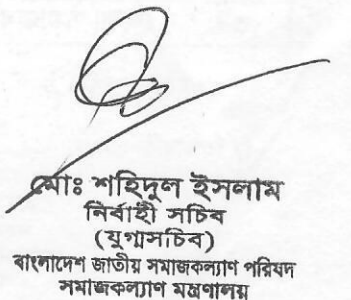 মোঃ শহিদুল ইসলাম
নির্বাহী সচিব
(যুগ্মসচিব)
বাংলাদেশ জাতীয় সমাজকল্যাণ পরিষদ
সমাজকল্যাণ মন্ত্রণালয়